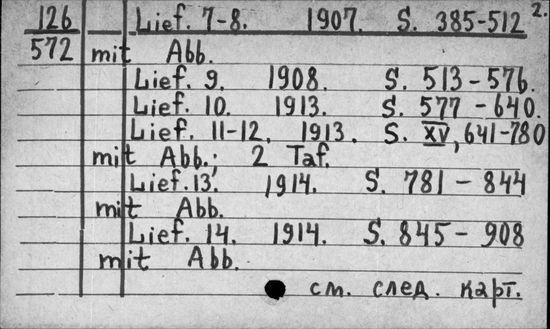 126 Lief. 7-8. 1907. S. 385-512 2.
572 mit Abb.
Lief. 9. 1908. S. 513-576.
Lief. 10. 1913. S. 577-640.
Lief. 11-12. 1913. S. XV, 641-780
mit Abb.; 2 Taf.
Lief. 13. 1914. S. 781-844
mit Abb.
Lief. 14. 1914. S. 845-908
mit Abb.
см. след. карт.